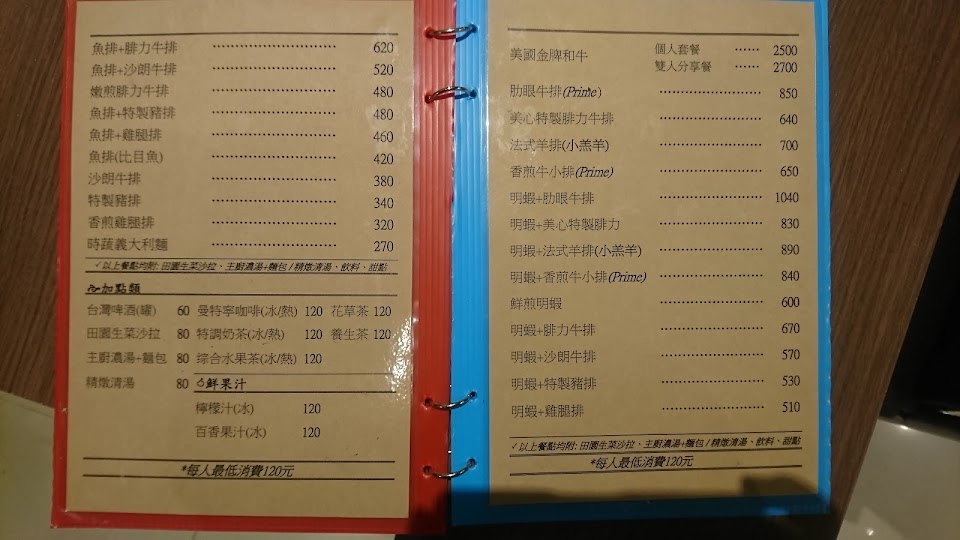 魚排+腓力牛排 620
魚排+沙朗牛排 520
嫩煎腓力牛排 480
魚排+特製豬排 480
魚排+雞腿排 460
魚排(比目魚) 420
沙朗牛排 380
特製豬排 340
香煎雞腿排 320
時蔬義大利麵 270
✓以上餐點均附: 田園生菜沙拉、主廚濃湯+麵包 / 精燉清湯、飲料、甜點
加點類
台灣啤酒(罐) 60 曼特寧咖啡(冰/熱) 120 花草茶 120
田園生菜沙拉 80 特調奶茶(冰/熱) 120 養生茶 120
主廚濃湯+麵包 80 綜合水果茶(冰/熱) 120
精燉清湯 80 鮮果汁
檸檬汁(冰) 120
百香果汁(冰) 120
*每人最低消費120元
美國金牌和牛 個人套餐 2500
雙人分享餐 2700
肋眼牛排(Prime) 850
美心特製腓力牛排 640
法式羊排(小羔羊) 700
香煎牛小排(Prime) 650
明蝦+肋眼牛排 1040
明蝦+美心特製腓力 830
明蝦+法式羊排(小羔羊) 890
明蝦+香煎牛小排(Prime) 840
鮮煎明蝦 600
明蝦+腓力牛排 670
明蝦+沙朗牛排 570
明蝦+特製豬排 530
明蝦+雞腿排 510
✓以上餐點均附: 田園生菜沙拉、主廚濃湯+麵包 / 精燉清湯、飲料、甜點
*每人最低消費120元